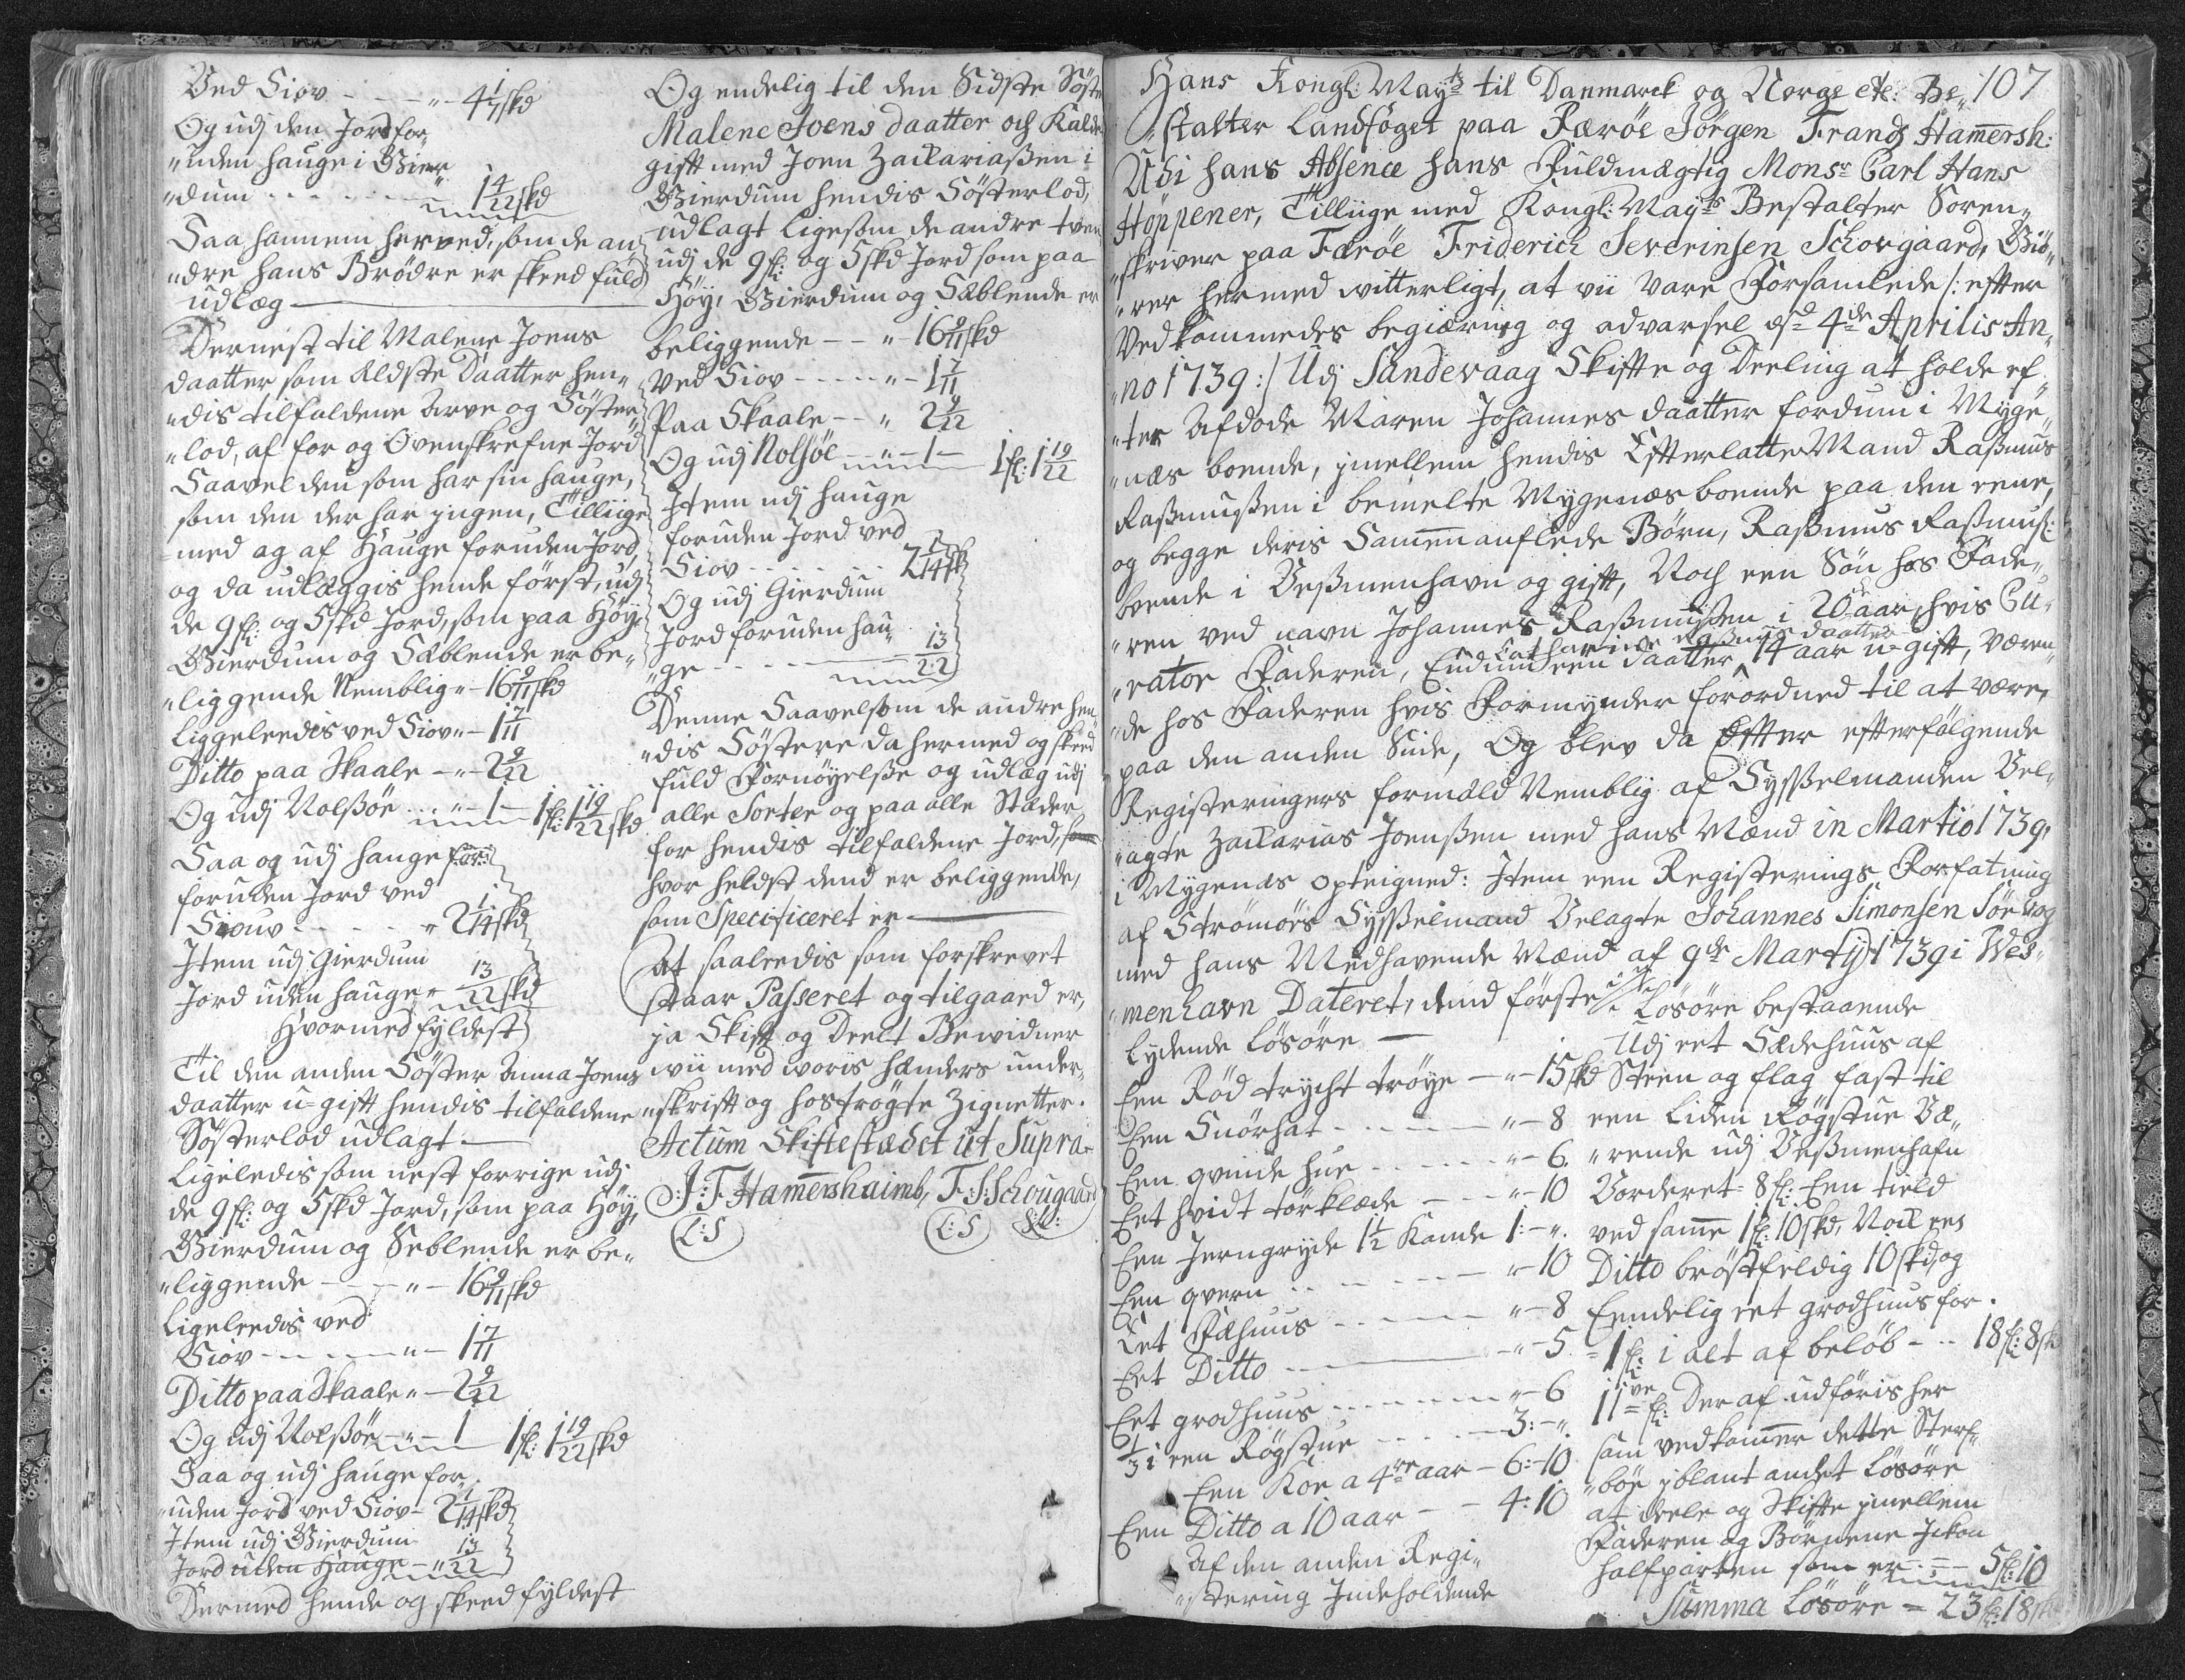 Ved Siov - - - „ - 4 1/7 skd
Og udj den Jord for-
„uden hauge i Gier-
„dum - - - - - 1 4/22 skd
Saa hannem herved, som de an-
„dre hans Brødre er skeed fuld
udlæg
Dernest til Malene Joens
daatter som Eldste Daatter hen-
„dis tilfaldene Arve og Söster-
„lod, af for og Ovenskrefne Jord
Saavel den som har sin hauge,
som den der har jngen, Tilliige
med og af Hauge foruden Jord,
og da udlæggis hende först, udj
de 9 fl: og 5 skd Jord, som paa Höy,
Gierdum og Sæblende er be-
„liggende Nemblig „ - 16 9/11 skd
Liggeleedis ved Siov „ - 1 7/11
Ditto paa Skaale - „ - 2 9/22
Og udj Nolsöe - - „ - 1 - 1 fl: 1 19/22 skd
Saa og udj hauge
foruden Jord ved
Siouv - - - - - „ 2 1/14 skd
Item udj Gierdum
Jord uden hauge „ 13/22 skd
Hvormed fyldest
Til den anden Söster Anna Joens
daatter u-gift hendis tilfaldene
Søsterlod udlagt
Ligeledis som nest forrige udj
de 9 fl: og 5 skd Jord, som paa Höy,
Gierdum og Seblende er be-
„liggende - - - „ - 16 9/11 skd
Ligeleedis ved
Siov - - - - - „ - 1 7/11
Ditto paa Skaale „ - 2 9/22
Og udj Nolsöe - „ - 1 1 fl: 1 19/22 skd
Saa og udj hauge for-
„uden Jord ved Siov - 2 1/14 skd
Item udj Gierdum
Jord uden Hauge - „ 13/22
Dermed hende og skeed fyldest
Og endelig til den Sidste Söster
Malene Joens daatter och Kaldet
gift med Joen Zackariaßen i
Gierdum hendis Sösterlod,
udlagt ligesom de andre tvende
udj de 9 fl: og 5 skd Jord som paa
Höy, Gierdum og Sæblende er
beliggende - - „ - 16 9/11 skd
Ved Siov - - - - „ - 1 7/11
Paa Skaale - - „ 2 9/22
Og udj Nolsöe - „ - 1 - 1 fl: 1 19/22
Item udj hauge
foruden Jord ved
Siov - - - - - - 2 1/14 skd
Og udj Gierdum
Jord foruden hau-
„ge - - - - - 13/22
Denne Saavelsom de andre hen-
„dis Söstere da hermed og skeed
fuld Fornöyelße og udlæg udj
alle Sorter og paa alle Stæder,
for hendis tilfaldene Jord,
hvor heldst dend er beliggende,
som Specificeret er
At saaleedis som forskrevet
staar Passeret og tilgaaed er,
ja Skift og Deelt Bewidner
wii med woris hænders under-
„skrift og hoströgte Zignetter.
Actum Skiftestædet ut Supra
J: F: Hamershaimb, F: S: Schougaard
L: S L: S
107
Hans Kongl: Mayts til Danmarck og Norge etc: Be-
„stalter Landfoget paa Færöe Jörgen Frandz Hamersh:
Udi hans Absence hans Fuldmægtig Monsr Carl Hans
Höppener, Tilliige med Kongl: Mayts Bestalter Soren-
„skriver paa Færöe Friderich Severinsen Schovgaard, Giö-
„rer hermed witterligt, at vii vare Forsamlede /: efter
Vedkommedes begiæring og advarsel d 4de Aprilis An-
„no 1739:/ Udj Sandevaag Skifte og Deeling at holde ef-
„ter Afdöde Maren Johannes daatter fordum i Myge-
„næs boende, jmellem hendis Efterlatte Mand Raßmus
Raßmußen i bemelte Mygenæs boende paa den eene,
og begge deris Sammenauflede Börn, Raßmus Raßmuß:
boende i Veßmenhavn og gift, Noch een Sön hos Fade-
„ren ved navn Johannes Raßmußen i 20de aar, hvis Cu-
Catharine Raßmus daatter
„rator Faderen, Endnu een daatter 14 aar u-gift, væren-
„de hos Faderen hvis Formynder forordned til at være,
paa den anden Side, Og blev da Efter efterfölgende
Registeringers formæld Nemblig af Sysßelmanden Vel-
„agte Zackarias Joenßen med hans Mænd in Martio 1739,
i Mygenæs opteigned: Item een Registerings Forfatning
af Strömöes Sysßelmand Velagte Johannes Simonsen
med hans Medhavende Mænd af 9de Martij 1739 i Wes-
„menhavn Dateret, dend förste
lydende Lösöre
Een Röd trycht tröye - „ - 15 skd
Een Snörhat - - - - „ - 8
Een qvinde hue - - - „ - 6.
Eet hvidt törklæde - - „ - 10
Een Jerngryde 1 1/2 Kande 1: - „.
Een qvern - - - - - „ - 10
Eet Fæhuus - - - - „ - 8
Eet Ditto - - - - „ - 5
Eet grodhuus - - - - „ - 6
1/3 i een Rögstue - - - 3: - „.
Een Koe a 4re aar - 6: - 10
Een Ditto a 10 aar - - 4: 10
Af den anden Regi-
„stering Indeholdende
Lösöre bestaaende
Udj eet Sædehuus af
Steen og flag fast til
een liden Rögstue Væ-
„rende udj Veßmenhafn
Vorderet 8 fl: Een tield
ved samme 1 fl: 10 skd, Nock een
Ditto bröstfeldig 10 skd, og
Eendelig eet grodhuus for
1 fl: i alt af belöb - - 18 fl: 8 skd
11ve fl: Der af udföris her
som vedkommer dette Sterf-
„boe jblant andet Lösöre
at deele og Skifte jmellem
Faderen og Börnene Ickon
halfparten som er - - - 5 fl: 10
Summa Lösöre = 23 fl: 18 skd